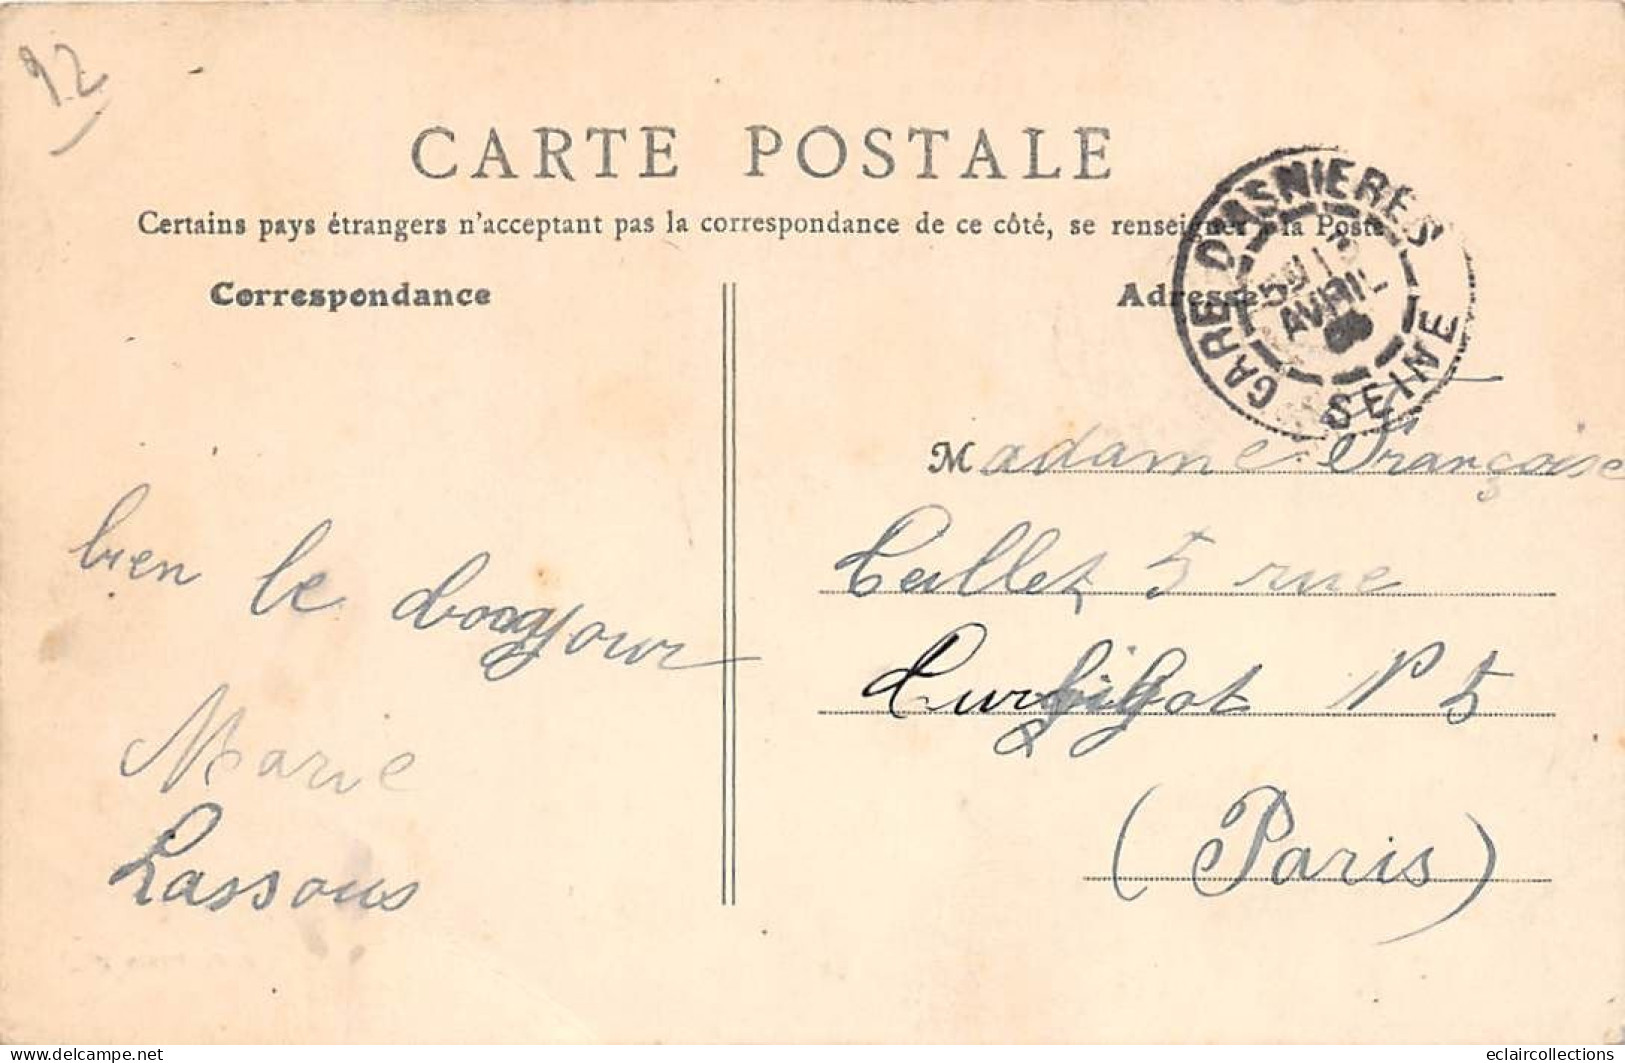 92
CARTE POSTALE
Certains pays étrangers n'acceptant pas la correspondance de ce côté, se renseigner à la Poste
Correspondance
Adresse
GARE D'ASNIERES
AVRIL
SEINE
Madame Françoise
5 rue
N° 5
(Paris)
bien le bonjour
Marie
Lassous
delcampe.net
eclaircollections